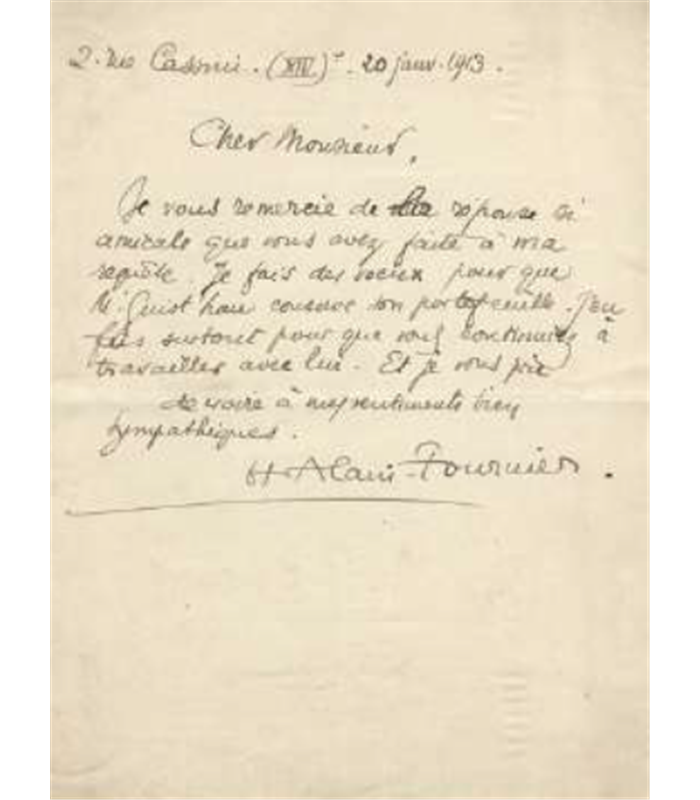 2. rue Cassini. (XIV)e. 20 janv. 1913.
Cher Monsieur,
Je vous remercie de la réponse si
amicale que vous avez faite à ma
requête. Je fais des vœux pour que
M. Guist'hau conserve son portefeuille. J'en
fais surtout pour que vous continuiez à
travailler avec lui. Et je vous prie
de croire à mes sentiments bien
sympathiques.
H Alain-Fournier.